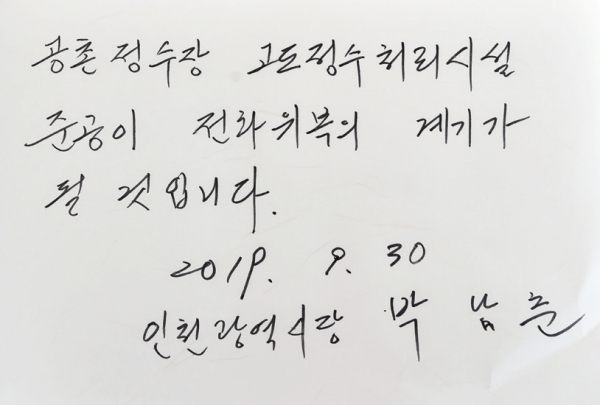 공촌정수장 고도정수처리시설
준공이 전화위복의 계기가
될 것입니다.
2019. 9. 30
인천광역시장 박남춘